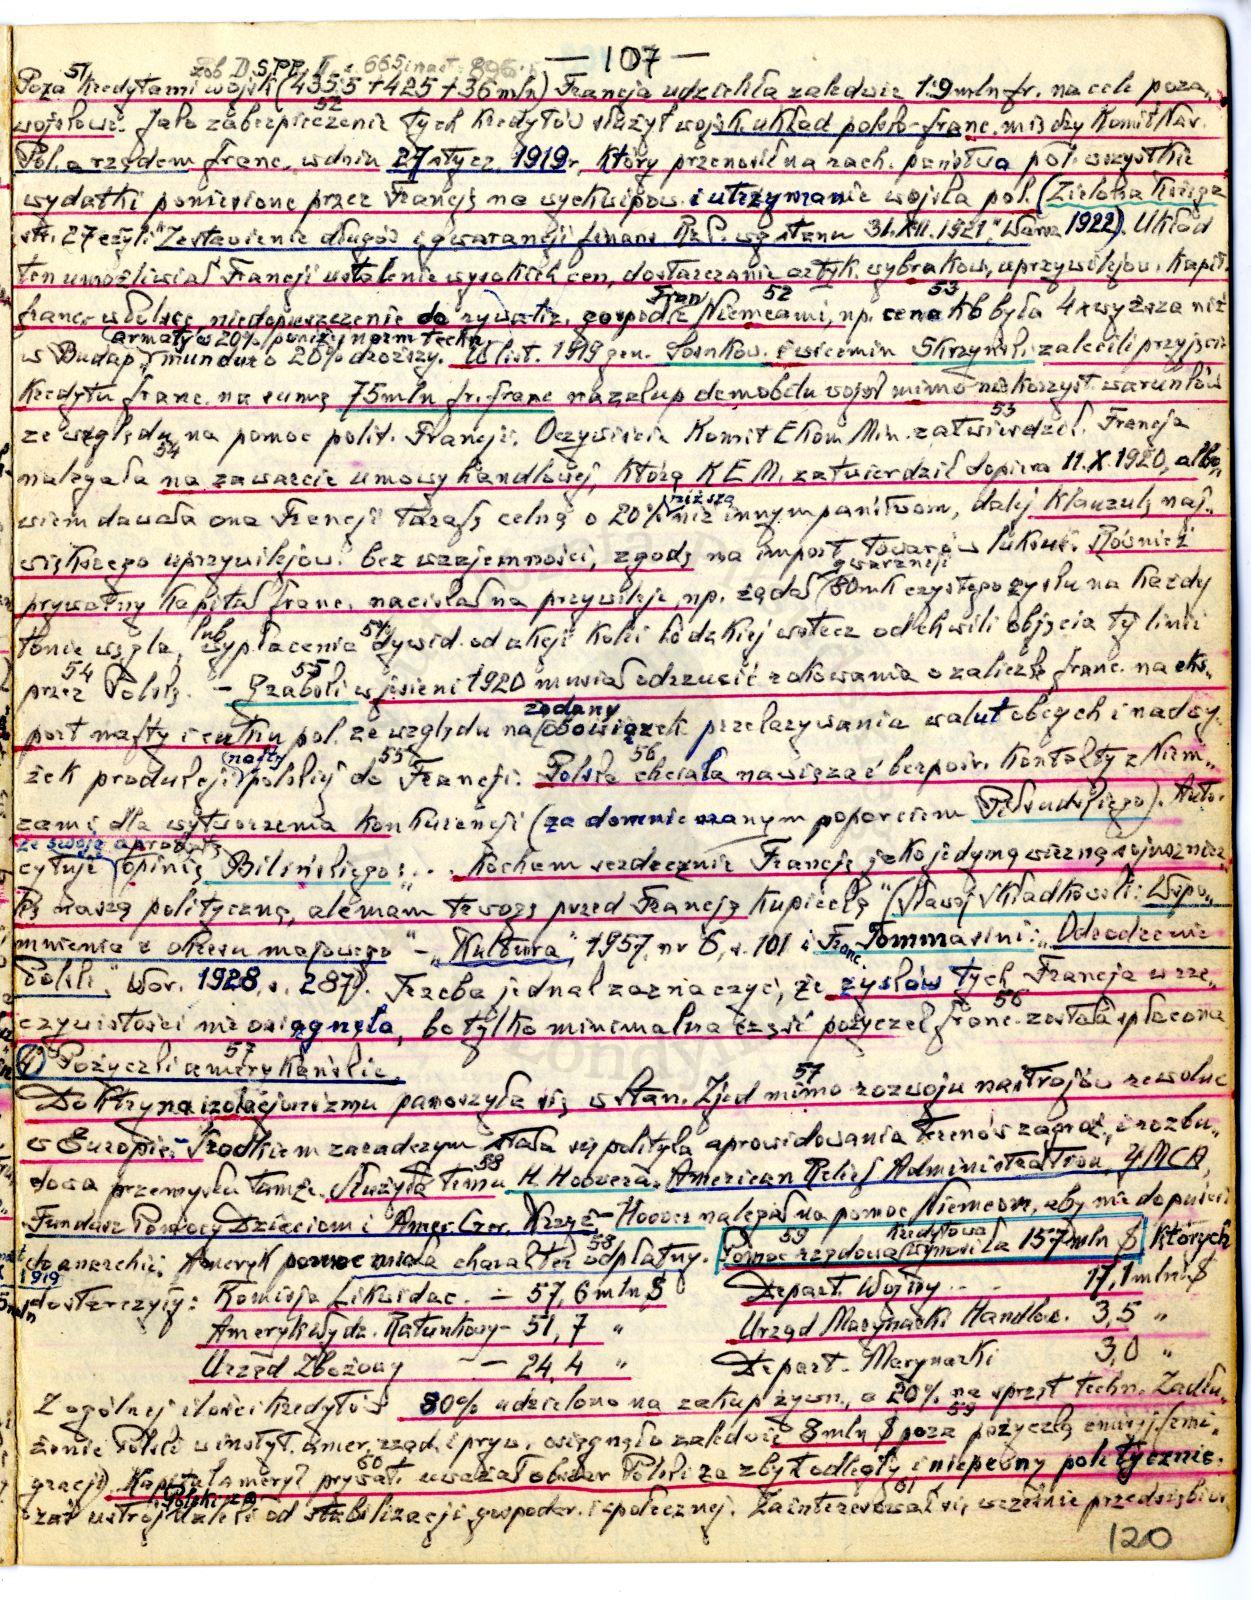 — 107 —
zob. D.S.P.P. II s. 665 i nast. 896
51
Poza kredytami wojsk. (435,5 + 425 + 36 mln) Francja udzieliła zaledwie 1·9 mln fr. na cele poza-
52
wojskowe. Jako zabezpieczenie tych kredytów służył wojsk. układ polsko-franc. między Komit. Nar.
Pol. a rządem franc. w dniu 27 stycz. 1919 r., który przenosił na rach. państwa pol. wszystkie
wydatki poniesione przez Francję na wyekwipow. i utrzymanie wojska pol. (Zielona Księga
str. 27 czyli "Zestawienie długów i gwarancji finans. Rzl. wg stanu 31.XII.1921," Warsz. 1922). Układ
ten umożliwiał Francji ustalenie wysokich cen, dostarczanie artyk. wybrakow., uprzywilejow. kapit.
Fran. 52 53
franc. w Polsce, niedopuszczenie do rywaliz. gospod. z Niemcami, np. cena kb była 4 x wyższa niż
armaty o 20% poniżej norm techn.
w Budap., mundur o 20% droższy. W list. 1919 gen. Sosnkow. i wicemin. Skrzyński zalecili przyjęcie
kredytu franc. na sumę 75 mln fr. franc. na zakup demobilu wojsk. mimo niekorzyst. warunków
53
ze względu na pomoc polit. Francji. Oczywiście Komit. Ekon. Min. zatwierdził. Francja
54
nalegała na zawarcie umowy handlowej, którą K.E.M. zatwierdził dopiero 11.X.1920, albo-
niższą
wiem dawała ona Francji taryfę celną o 20% niż innym państwom, dalej klauzulę naj-
większego uprzywilejow. bez wzajemności, zgodę na import towarów luksus. Również
gwarancji
prywatny kapitał franc. naciskał na przywileje, np. żądał 80 mk czystego zysku na każdej
lub 54
tonie węgla, wypłacenia dywid. od akcji Kolei Łódzkiej wstecz od chwili objęcia tej linii
54 55
przez Polskę. — Grabski w jesieni 1920 musiał odrzucić rokowania o zaliczkę franc. na eks-
żądany
port nafty i cukru pol. ze względu na obowiązek przekazywania walut obcych i nadwy-
nafty 55 56
żek produkcji polskiej do Francji. Polska chciała nawiązać bezpośr. kontakty z Niem-
cami dla wytworzenia konkurencji (za domniemanym poparciem Piłsudskiego). Autor
ze swoją aprobatą
cytuje opinię Bilińskiego: „... kocham serdecznie Francję jako jedyną wierną sojusznicz-
kę naszą polityczną, ale mam trwogę przed Francją kupiecką" (Sławoj Składkowski: Wspo-
mnienia z okresu majowego" — „Kultura", 1957, nr 6, s. 101 i Franc. Tommasini: „Odrodzenie
Polski," War. 1928, s. 287). Trzeba jednak zaznaczyć, że zysków tych Francja w rze-
56
czywistości nie osiągnęła, bo tylko minimalna część pożyczek franc. została spłacona
57
Pożyczki amerykańskie.
57
Doktryna izolacjonizmu panoszyła się w Stan. Zjed. mimo rozwoju nastrojów rewoluc.
w Europie. — Środkiem zaradczym stała się polityka aprowidowania terenów zagroż. i rozbu-
58
dowa przemysłu tamże. Służyła temu H. Hoovera American Relief Administration, YMCA,
Fundusz Pomocy Dzieciom i Amer. Czer. Krzyż — Hoover nalegał na pomoc Niemcom, aby nie dopuścić
58 59 kredytowa
do anarchii; Ameryk. pomoc miała charakter odpłatny. Pomoc rządowa wynosiła 157 mln $ których
1919
dostarczyły: Komisja Likwidac. — 57,6 mln $ Depart. Wojny ... 17,1 mln $
Ameryk. Wydz. Ratunkowy — 51,7 " Urząd Marynarki Handlow. 3,5 "
Urząd Zbożowy — 24,4 " Depart. Marynarki 3,0 "
Z ogólnej ilości kredytów 80% udzielono na zakup żywn., a 20% na sprzęt techn. Zadłu-
59
żenie Polski w instyt. amer. rząd. i pryw. osiągnęło zaledwie 8 mln $ poza pożyczką emisyj. (emi-
60
gracji). Kapitał ameryk. prywat. uważał obszar Polski za zbyt odległy i niepewny politycznie,
Polski za 61
zaś ustrój daleki od stabilizacji gospodar. i społecznej. Zainteresował się wcześnie przedsiębior.
120